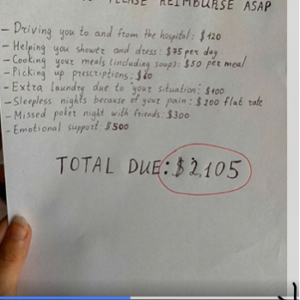 PLEASE REIMBURSE ASAP
- Driving you to and from the hospital: $120
- Helping you shower and dress: $75 per day
- Cooking your meals (including soup): $50 per meal
- Picking up prescriptions: $60
- Extra laundry due to "your situation": $100
- Sleepless nights because of your pain: $200 flat rate
- Missed poker night with friends: $300
- Emotional support: $500
TOTAL DUE: $2,105